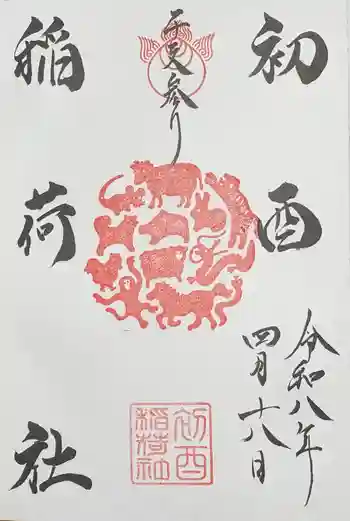 初酉
干支参り
稲荷社
令和八年
四月十八日
初酉
稲荷社